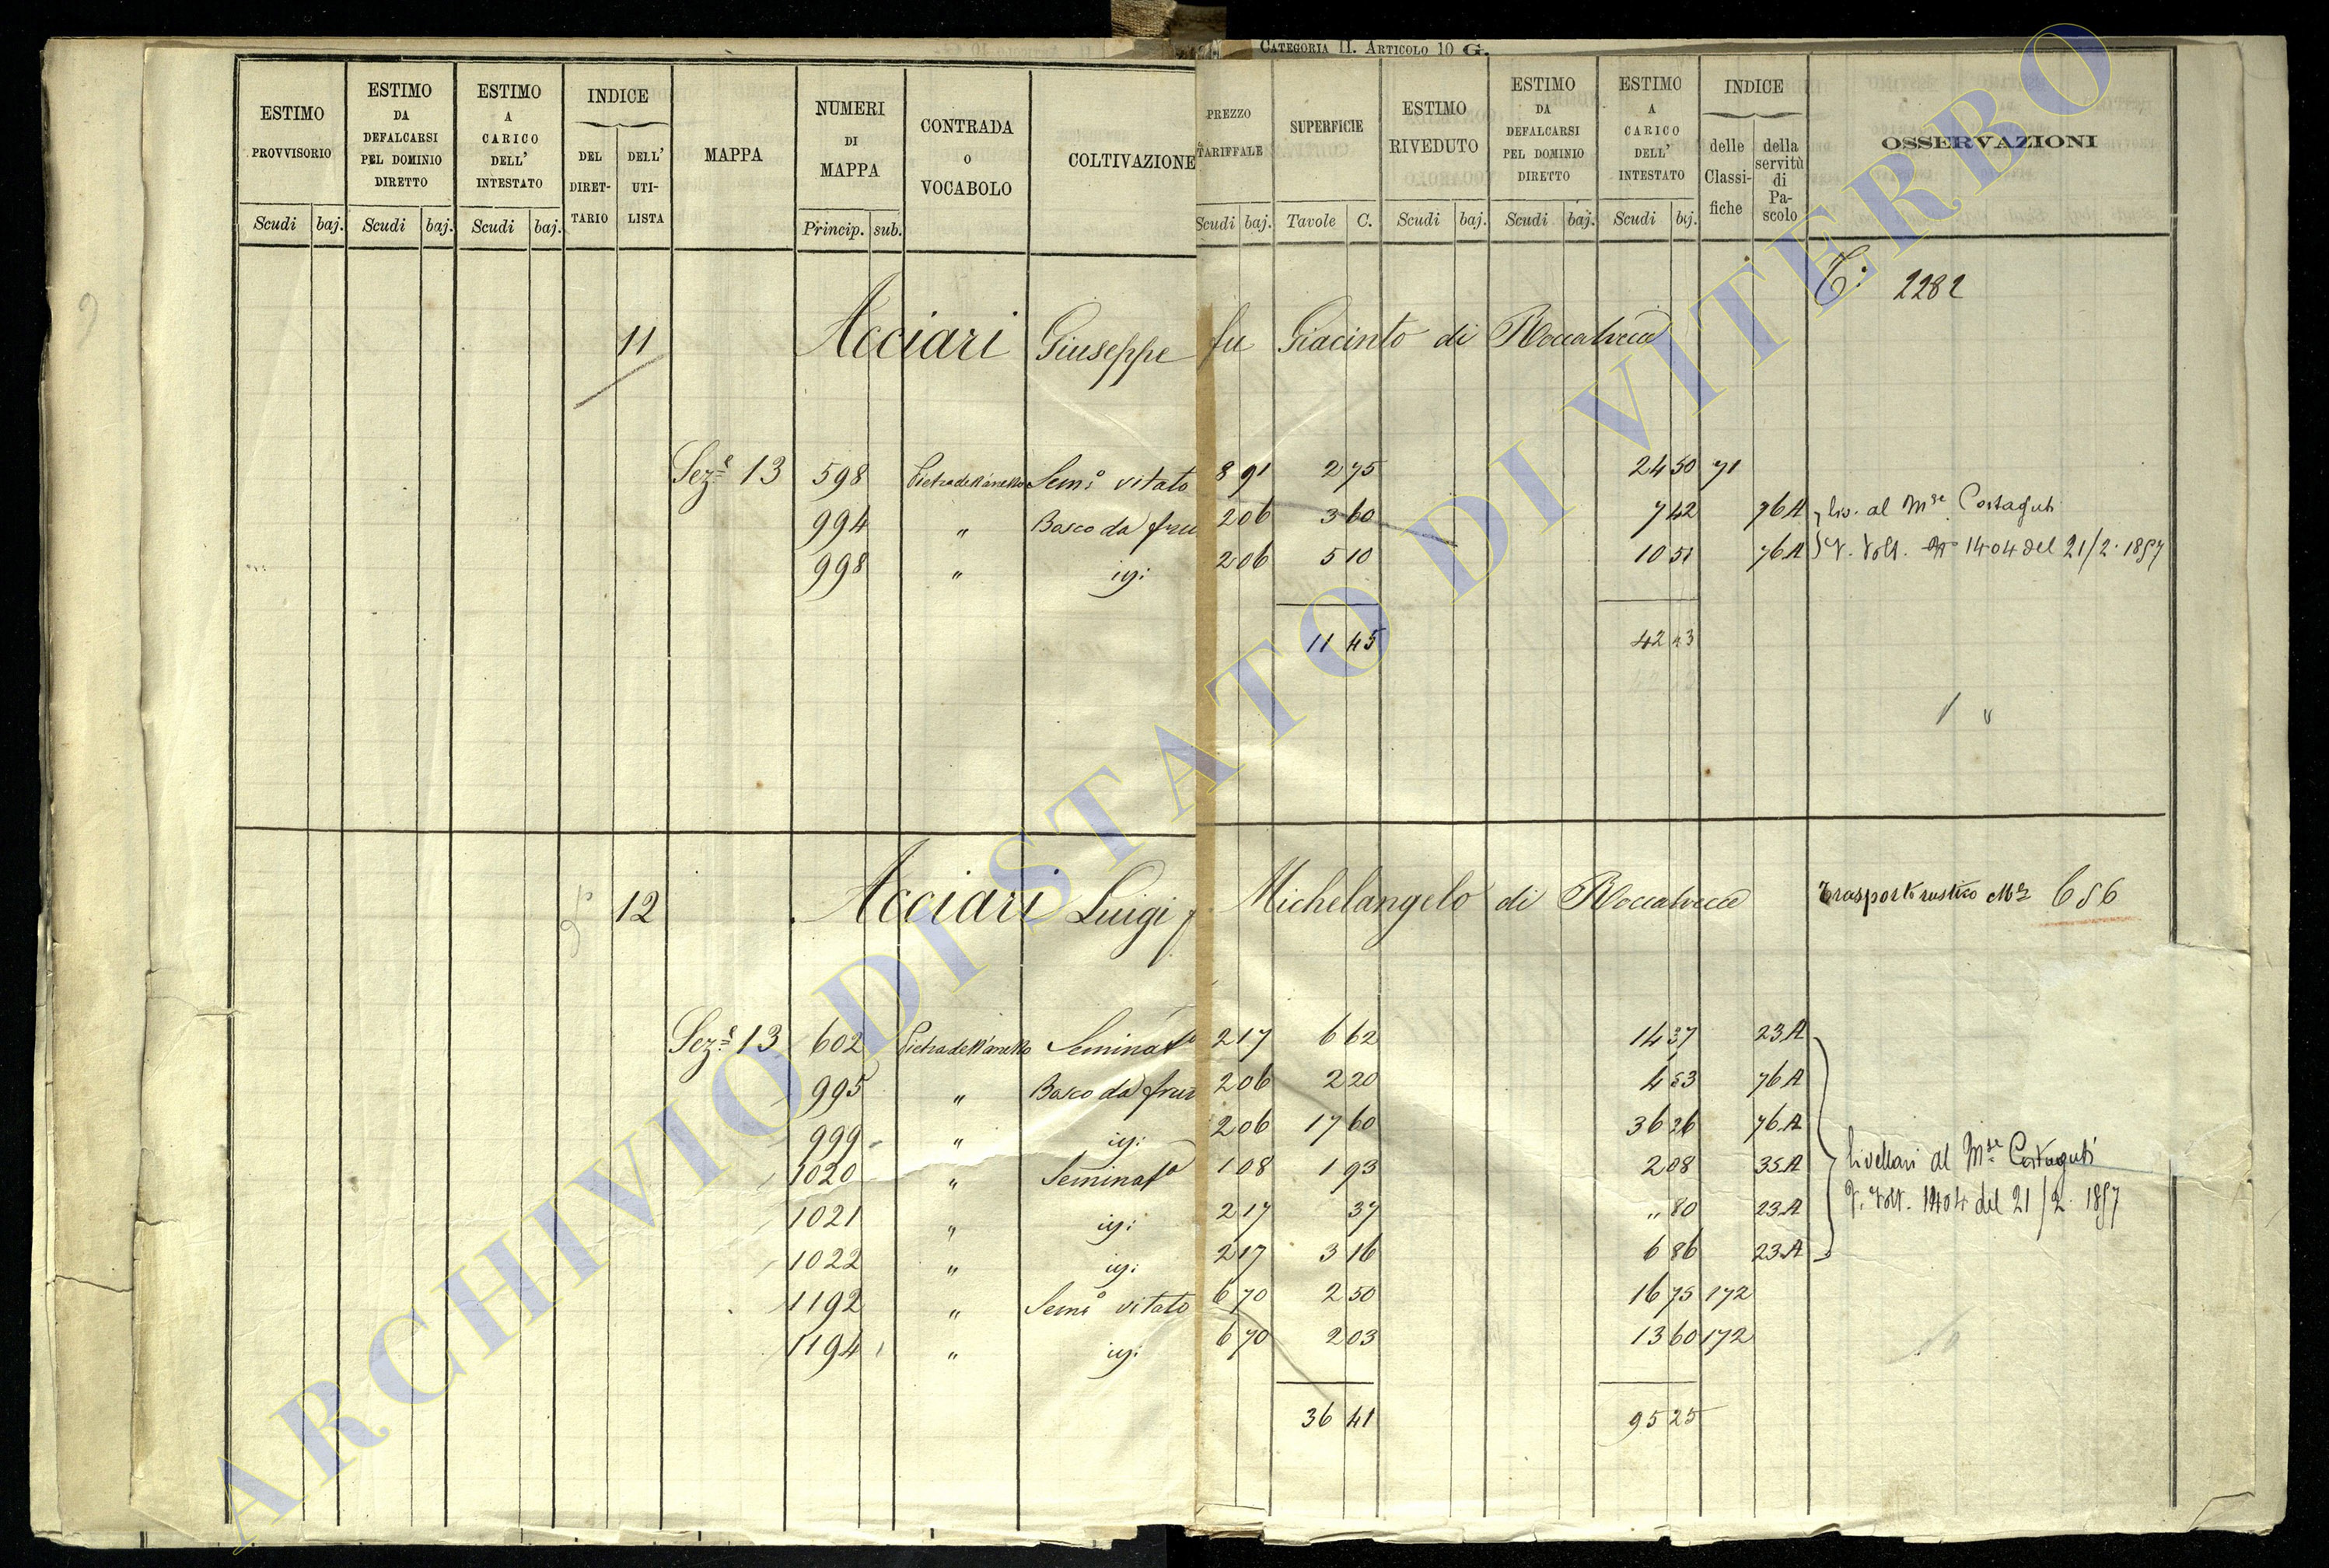 CATEGORIA II. ARTICOLO 10 G.
ESTIMO PROVVISORIO Scudi baj.
ESTIMO DA DEFALCARSI PEL DOMINIO DIRETTO Scudi baj.
ESTIMO A CARICO DELL' INTESTATO Scudi baj.
INDICE DEL DIRETTARIO DELL' UTILISTA
MAPPA
NUMERI DI MAPPA Princip. sub.
CONTRADA O VOCABOLO
COLTIVAZIONE
PREZZO TARIFFALE Scudi baj.
SUPERFICIE Tavole C.
ESTIMO RIVEDUTO Scudi baj.
ESTIMO DA DEFALCARSI PEL DOMINIO DIRETTO Scudi baj.
ESTIMO A CARICO DELL' INTESTATO Scudi baj.
INDICE delle Classifiche della servitù di Pascolo
OSSERVAZIONI
T: 2282
11 Acciari Giuseppe fu Giacinto di Roccalvecce
Sez.e 13 598 Pietra dell'anello Sem.o vitato 8 91 2 75 24 50 71
994 " Bosco da fru 2 06 3 60 7 42 76A liv. al Mse Costaguti
998 " id: 2 06 5 10 10 51 76A V. Volt. 1404 del 21/2. 1857
11 45 42 43
12 Acciari Luigi f. Michelangelo di Roccalvecce Trasporto rustico No 656
Sez.e 13 602 Pietra dell'anello Seminato 2 17 6 62 14 37 23A
995 " Bosco da frut 2 06 2 20 4 53 76A
999 " id: 2 06 17 60 36 26 76A
1020 " Seminato 1 08 1 93 2 08 35A livellari al Mse Costaguti
1021 " id: 2 17 37 " 80 23A V. Volt. 1404 del 21/2. 1857
1022 " id: 2 17 3 16 6 86 23A
1192 " Sem.o vitato 6 70 2 50 16 75 172
1194 " id: 6 70 2 03 13 60 172
36 41 95 25
ARCHIVIO DI STATO DI VITERBO